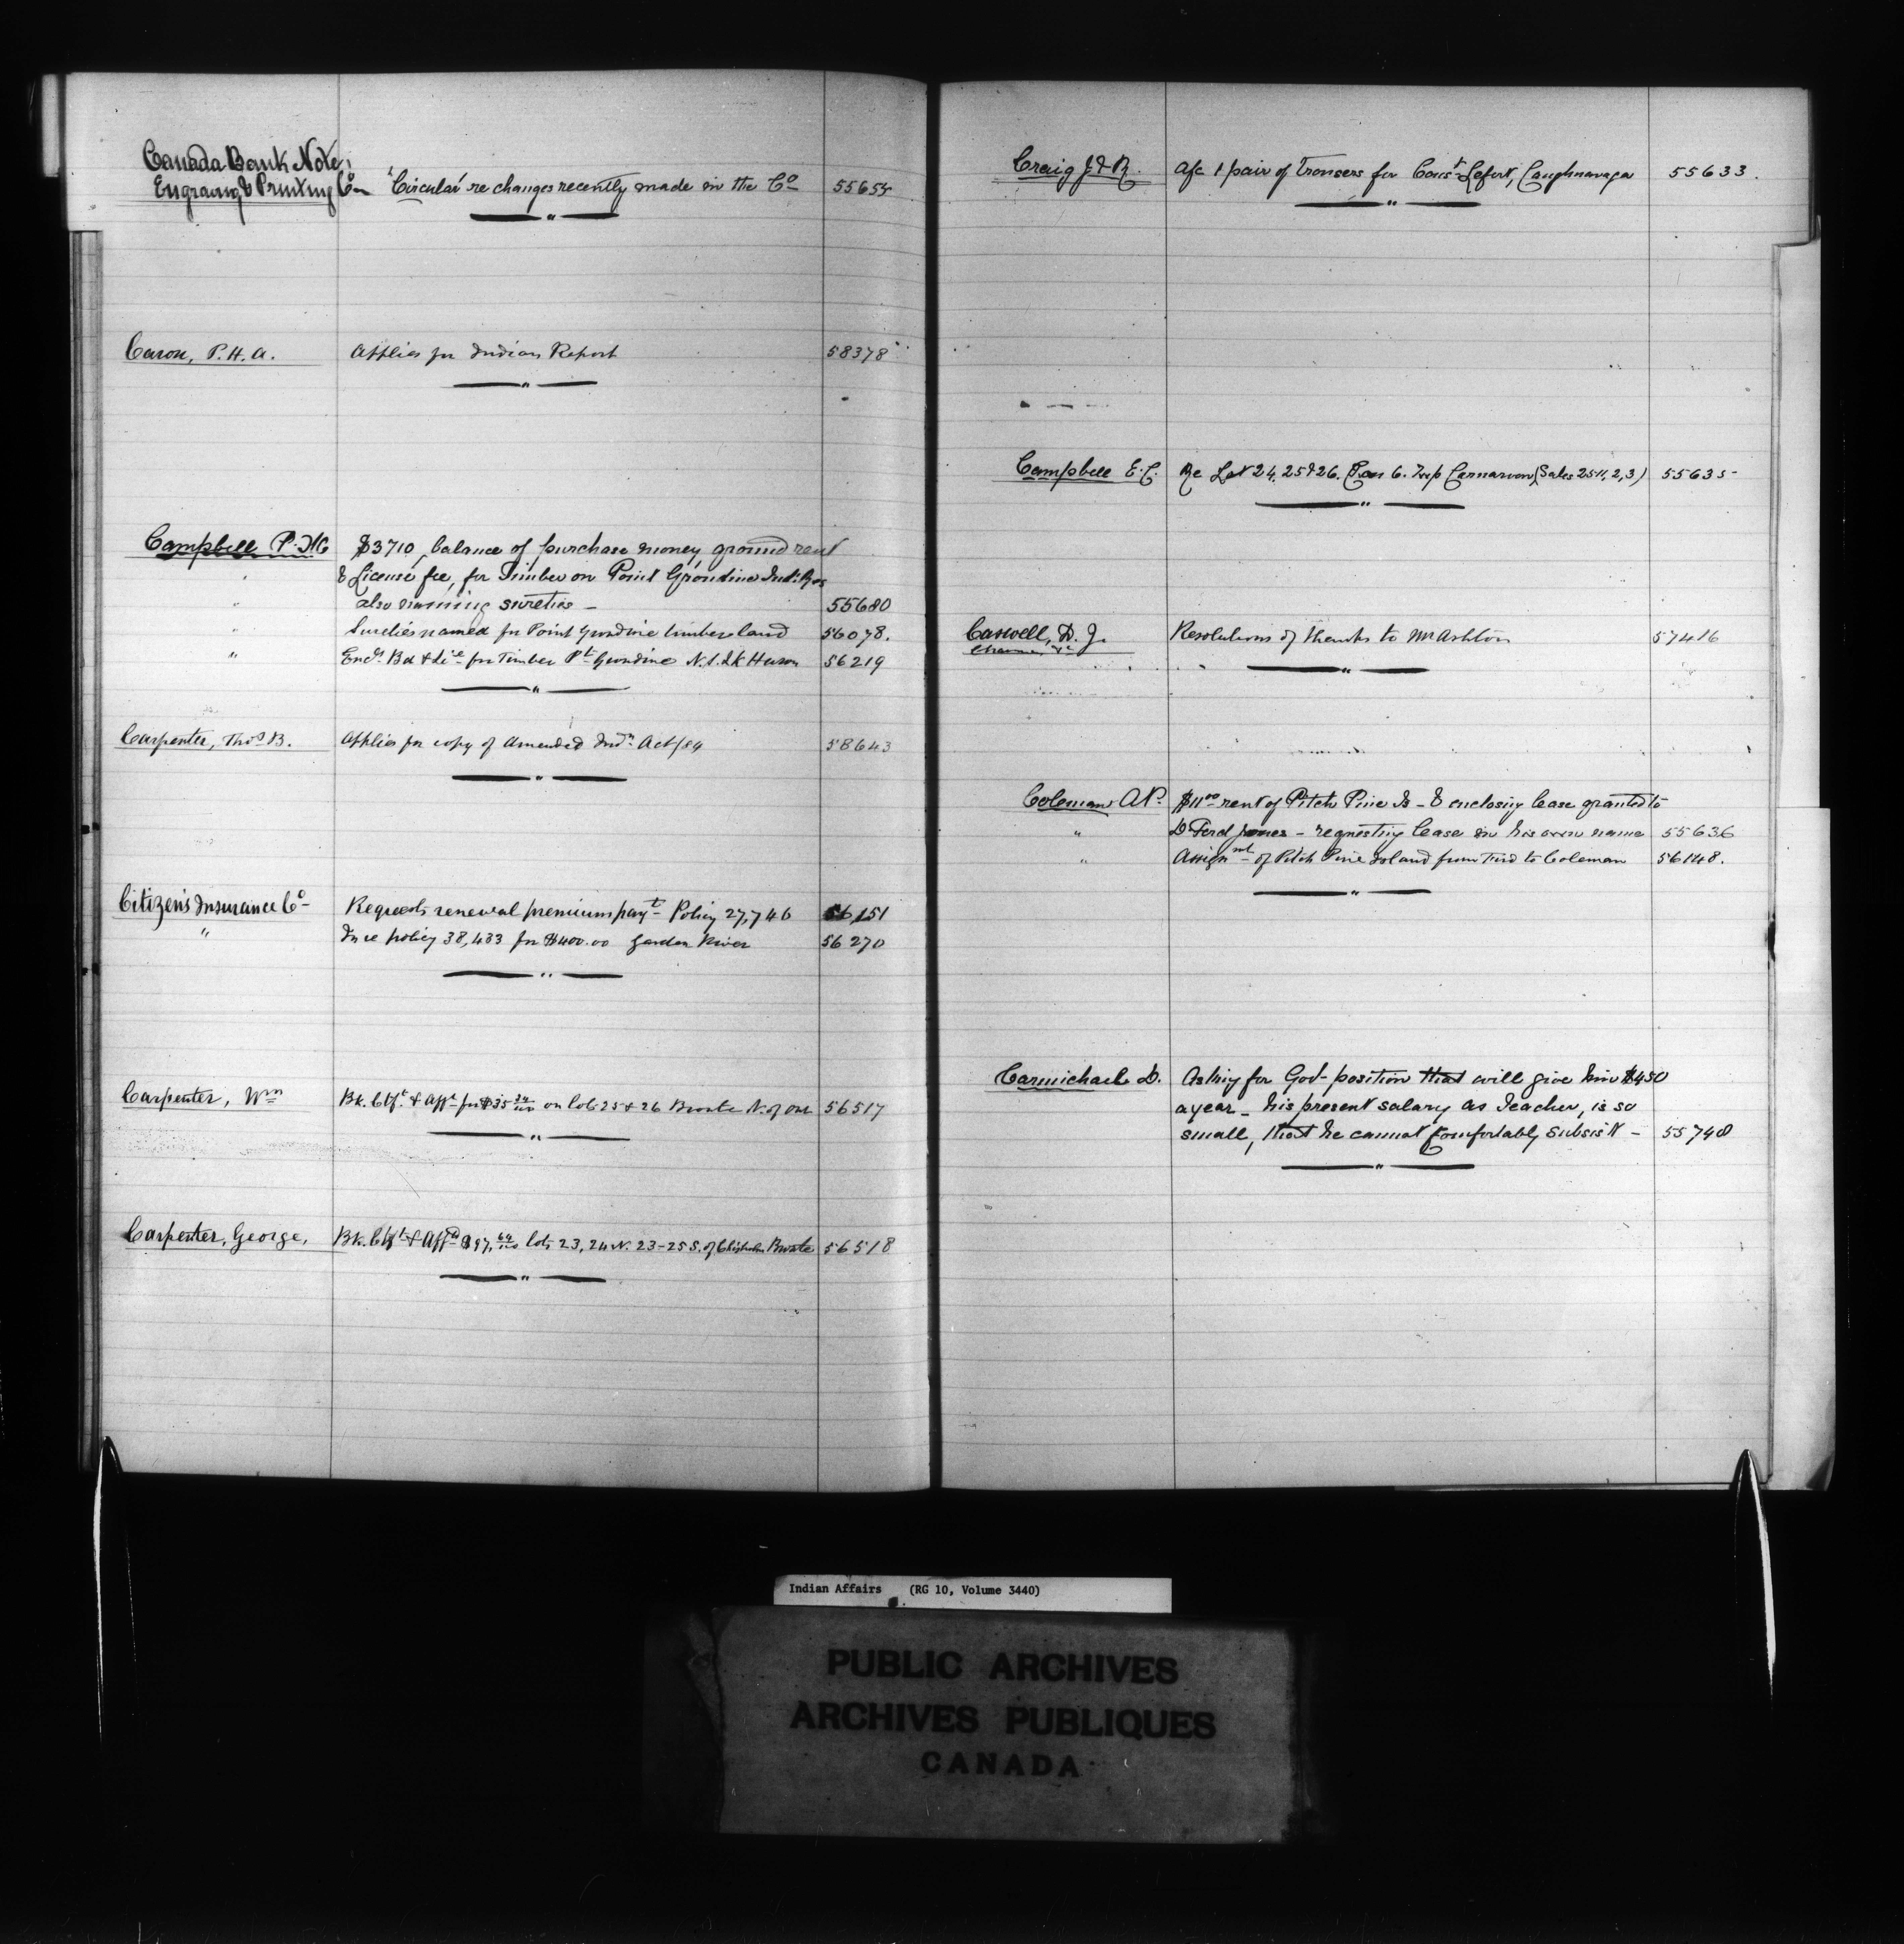 Canada Bank Note,
Engraving & Printing Co "Circular" re changes recently made in the Co 55654
Caron, P. H. A. Applies for Indian Report 58378
Campbell P. $3710, balance of purchase money ground rent
" & License fee, for Timber on Point Grondine Ind: Res
" also naming sureties - 55680
" Sureties named for Point Grondine timber land 56078.
" Encg Bd & Lice for Timber Pt Grondine N. S. Lk Huron 56219
Carpenter, Thos B. Applies for copy of Amended Indn Act/84 58643
Citizen's Insurance Co Requests renewal premium payt Policy 27,746 56,151
" In re policy 38,433 for $400.00 Garden River 56270
Carpenter, Wm Bk. Ctft & Afft for $35 on lots 25 & 26 Bronte N. of 56517
Carpenter, George, Bk. Ctft & Affd $97, 64/100 lots 23, 24 N. 23-25 S. of Chisholm Bronte 56518
Craig J & R. A/c 1 pair of Trousers for Const Lefort, Caughnawaga 55633.
Campbell E. C. Re Lot 24, 25 & 26. Con 6. Twp Carnarvon (Sales 2511, 2, 3) 55635
Caswell, D. J. Resolutions of thanks to Mr Ashton 57416
Coleman A P. $11 00 rent of Pitch Pine Is - & enclosing lease granted to
" D. Ferd Jones - requesting lease in his own name 55636
" Assignmt of Pitch Pine Island from Ferd to Coleman 56148.
Carmichael D. Asking for Govt position that will give him $450
a year - his present salary as Teacher, is so
small, that he cannot comfortably subsist - 55748
Indian Affairs (RG 10, Volume 3440)
PUBLIC ARCHIVES
ARCHIVES PUBLIQUES
CANADA